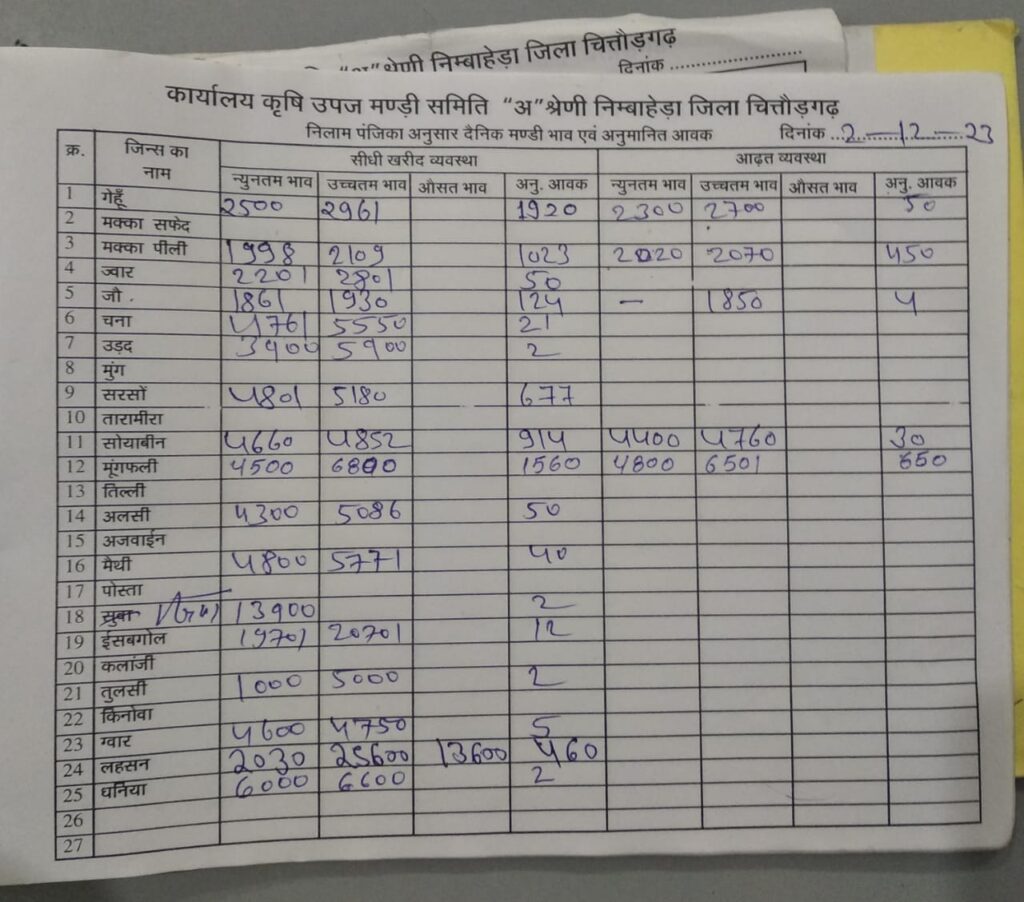 "अ" श्रेणी निम्बाहेड़ा जिला चित्तौड़गढ़
दिनांक ....................
कार्यालय कृषि उपज मण्ड़ी समिति "अ" श्रेणी निम्बाहेड़ा जिला चित्तौड़गढ़
निलाम पंजिका अनुसार दैनिक मण्डी भाव एवं अनुमानित आवक दिनांक 2-12-23
क्र. जिन्स का नाम सीधी खरीद व्यवस्था आढ़त व्यवस्था
न्युनतम भाव उच्चतम भाव औसत भाव अनु. आवक न्युनतम भाव उच्चतम भाव औसत भाव अनु. आवक
1 गेहूँ 2500 2961 1920 2300 2700 50
2 मक्का सफेद
3 मक्का पीली 1998 2109 1023 2020 2070 450
4 ज्वार 2201 2801 50
5 जौ . 1861 1930 124 – 1850 4
6 चना 4761 5550 21
7 उड़द 3900 5900 2
8 मुंग
9 सरसों 4801 5180 677
10 तारामीरा
11 सोयाबीन 4660 4852 914 4400 4760 30
12 मूंगफली 4500 1560 4800 6501 650
13 तिल्ली
14 अलसी 4300 5086 50
15 अजवाईन
16 मैथी 4800 5771 40
17 पोस्ता
18 13900 2
19 ईसबगोल 19701 20701 12
20 कलांजी
21 तुलसी 1000 5000 2
22 किनोवा
23 ग्वार 4600 4750 5
24 लहसन 2030 25600 13600 460
25 धनिया 6000 6600 2
26
27